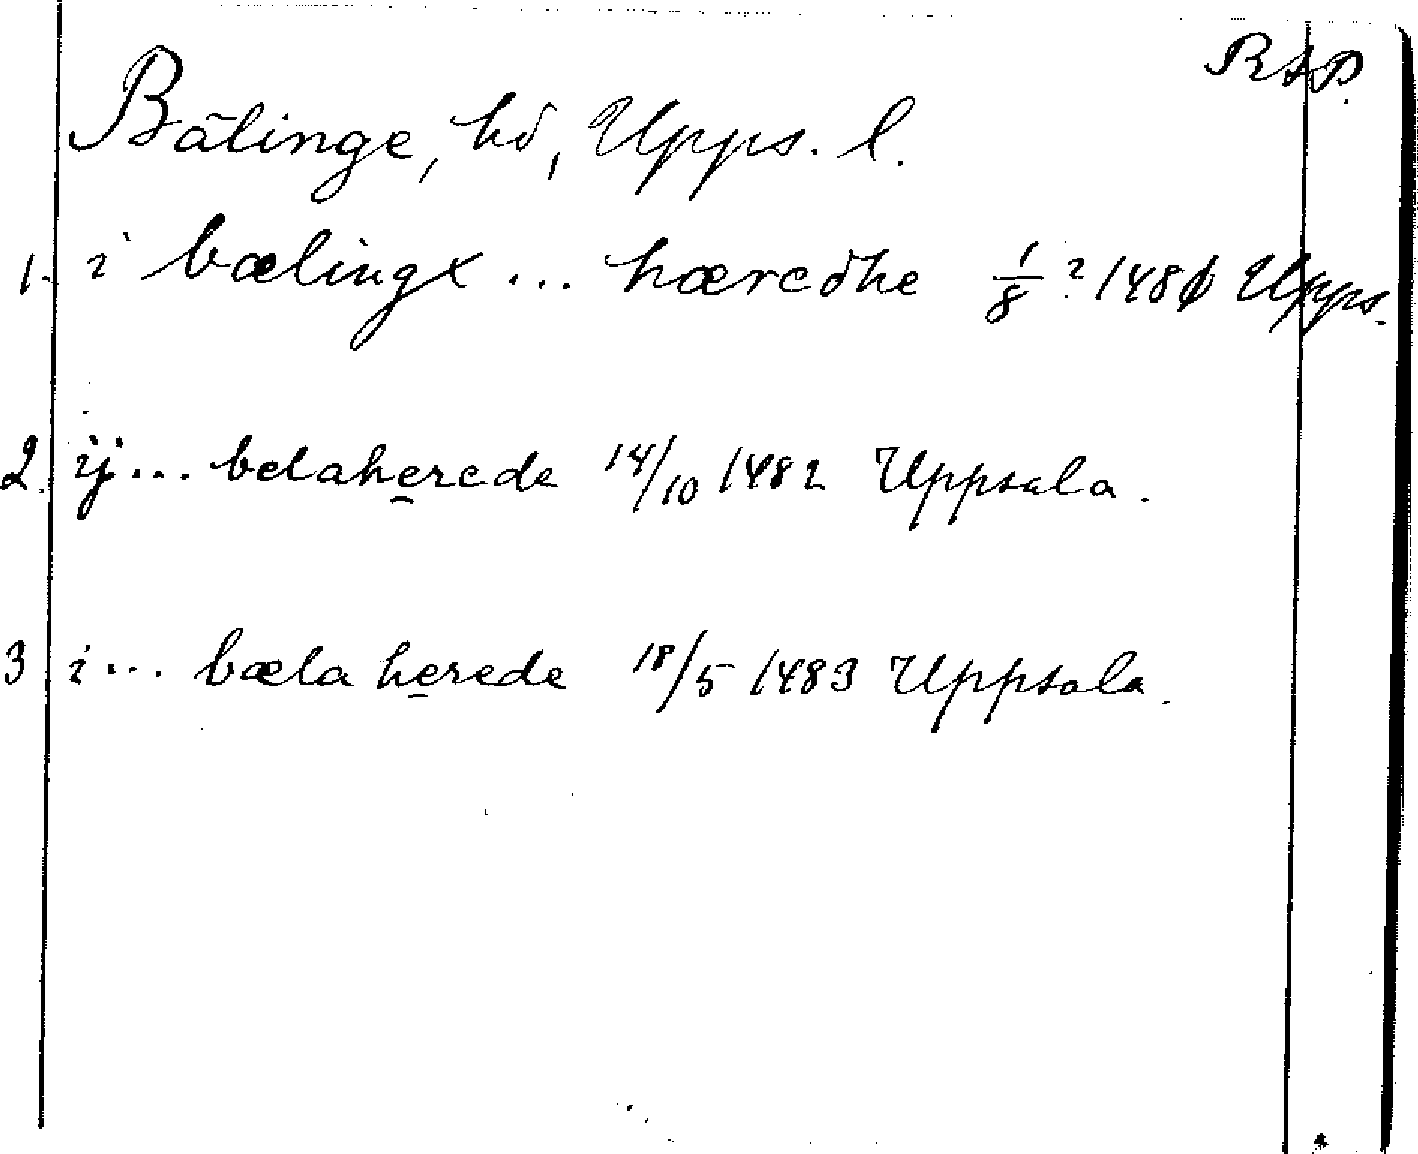 RAP.
Bälinge, hd, Upps. l.
1. i bælingx ... hæredhe 1/8 ? 1480 Upps.
2. ij ... belaherede 14/10 1482 Uppsala.
3 i ... bæla herede 18/5 1483 Uppsala.